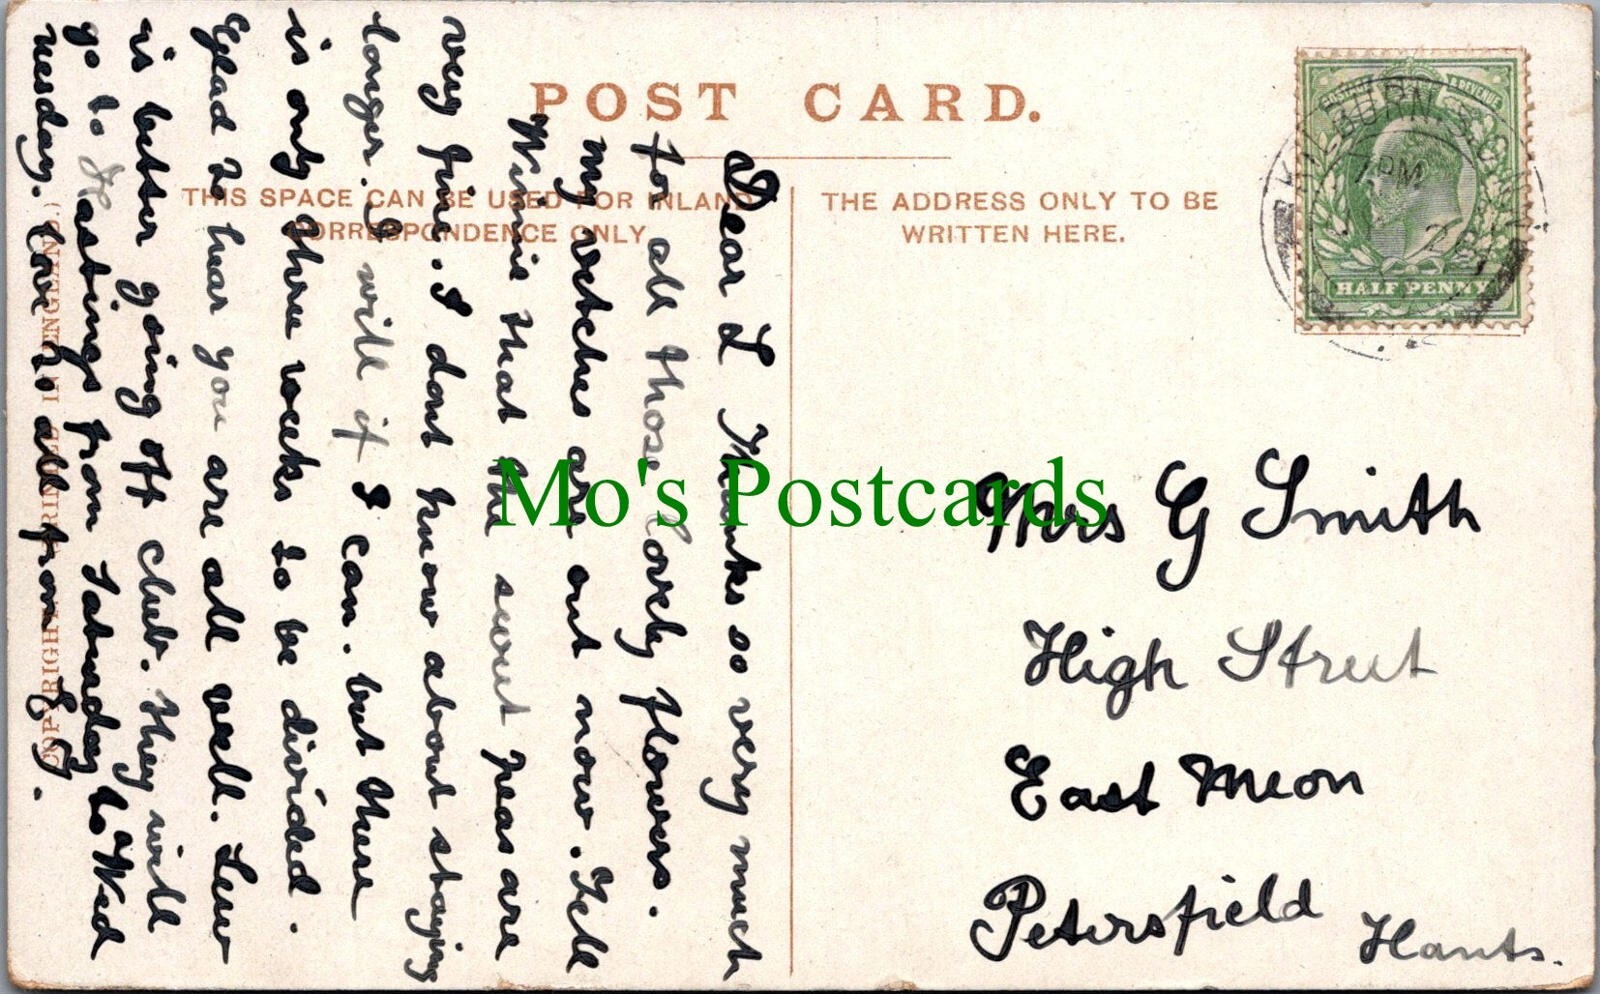 POST CARD.
THIS SPACE CAN BE USED FOR INLAND
CORRESPONDENCE ONLY
THE ADDRESS ONLY TO BE
WRITTEN HERE.
POSTAGE & REVENUE
HALF PENNY
KILBURN S.O.
7 PM
Dear L Thanks so very much
for all those lovely flowers.
my vetches are out now. Tell
Winnie that the sweet peas are
very fine. I dont know about staying
longer. I will if I can. but there
is only three weeks to be divided.
Glad to hear you are all well. Lew
is better going off club. they will
go to Hastings from Saturday to Wed
nesday. love to all from E G.
Mrs G Smith
High Street
East Meon
Petersfield
Hants.
Mo's Postcards